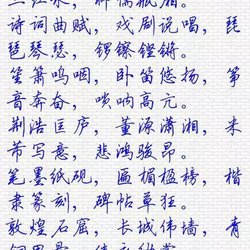 诗词曲赋，戏剧说唱，琵
琶琴瑟，锣镲铿锵。
笙箫呜咽，卧笛悠扬，筝
音奔奋，唢呐高亢。
荆浩匡庐，董源潇湘，米
芾写意，悲鸿骏昂。
笔墨纸砚，匾楣楹榜，楷
隶篆刻，碑帖草狂。
敦煌石窟，长城伟墙，青